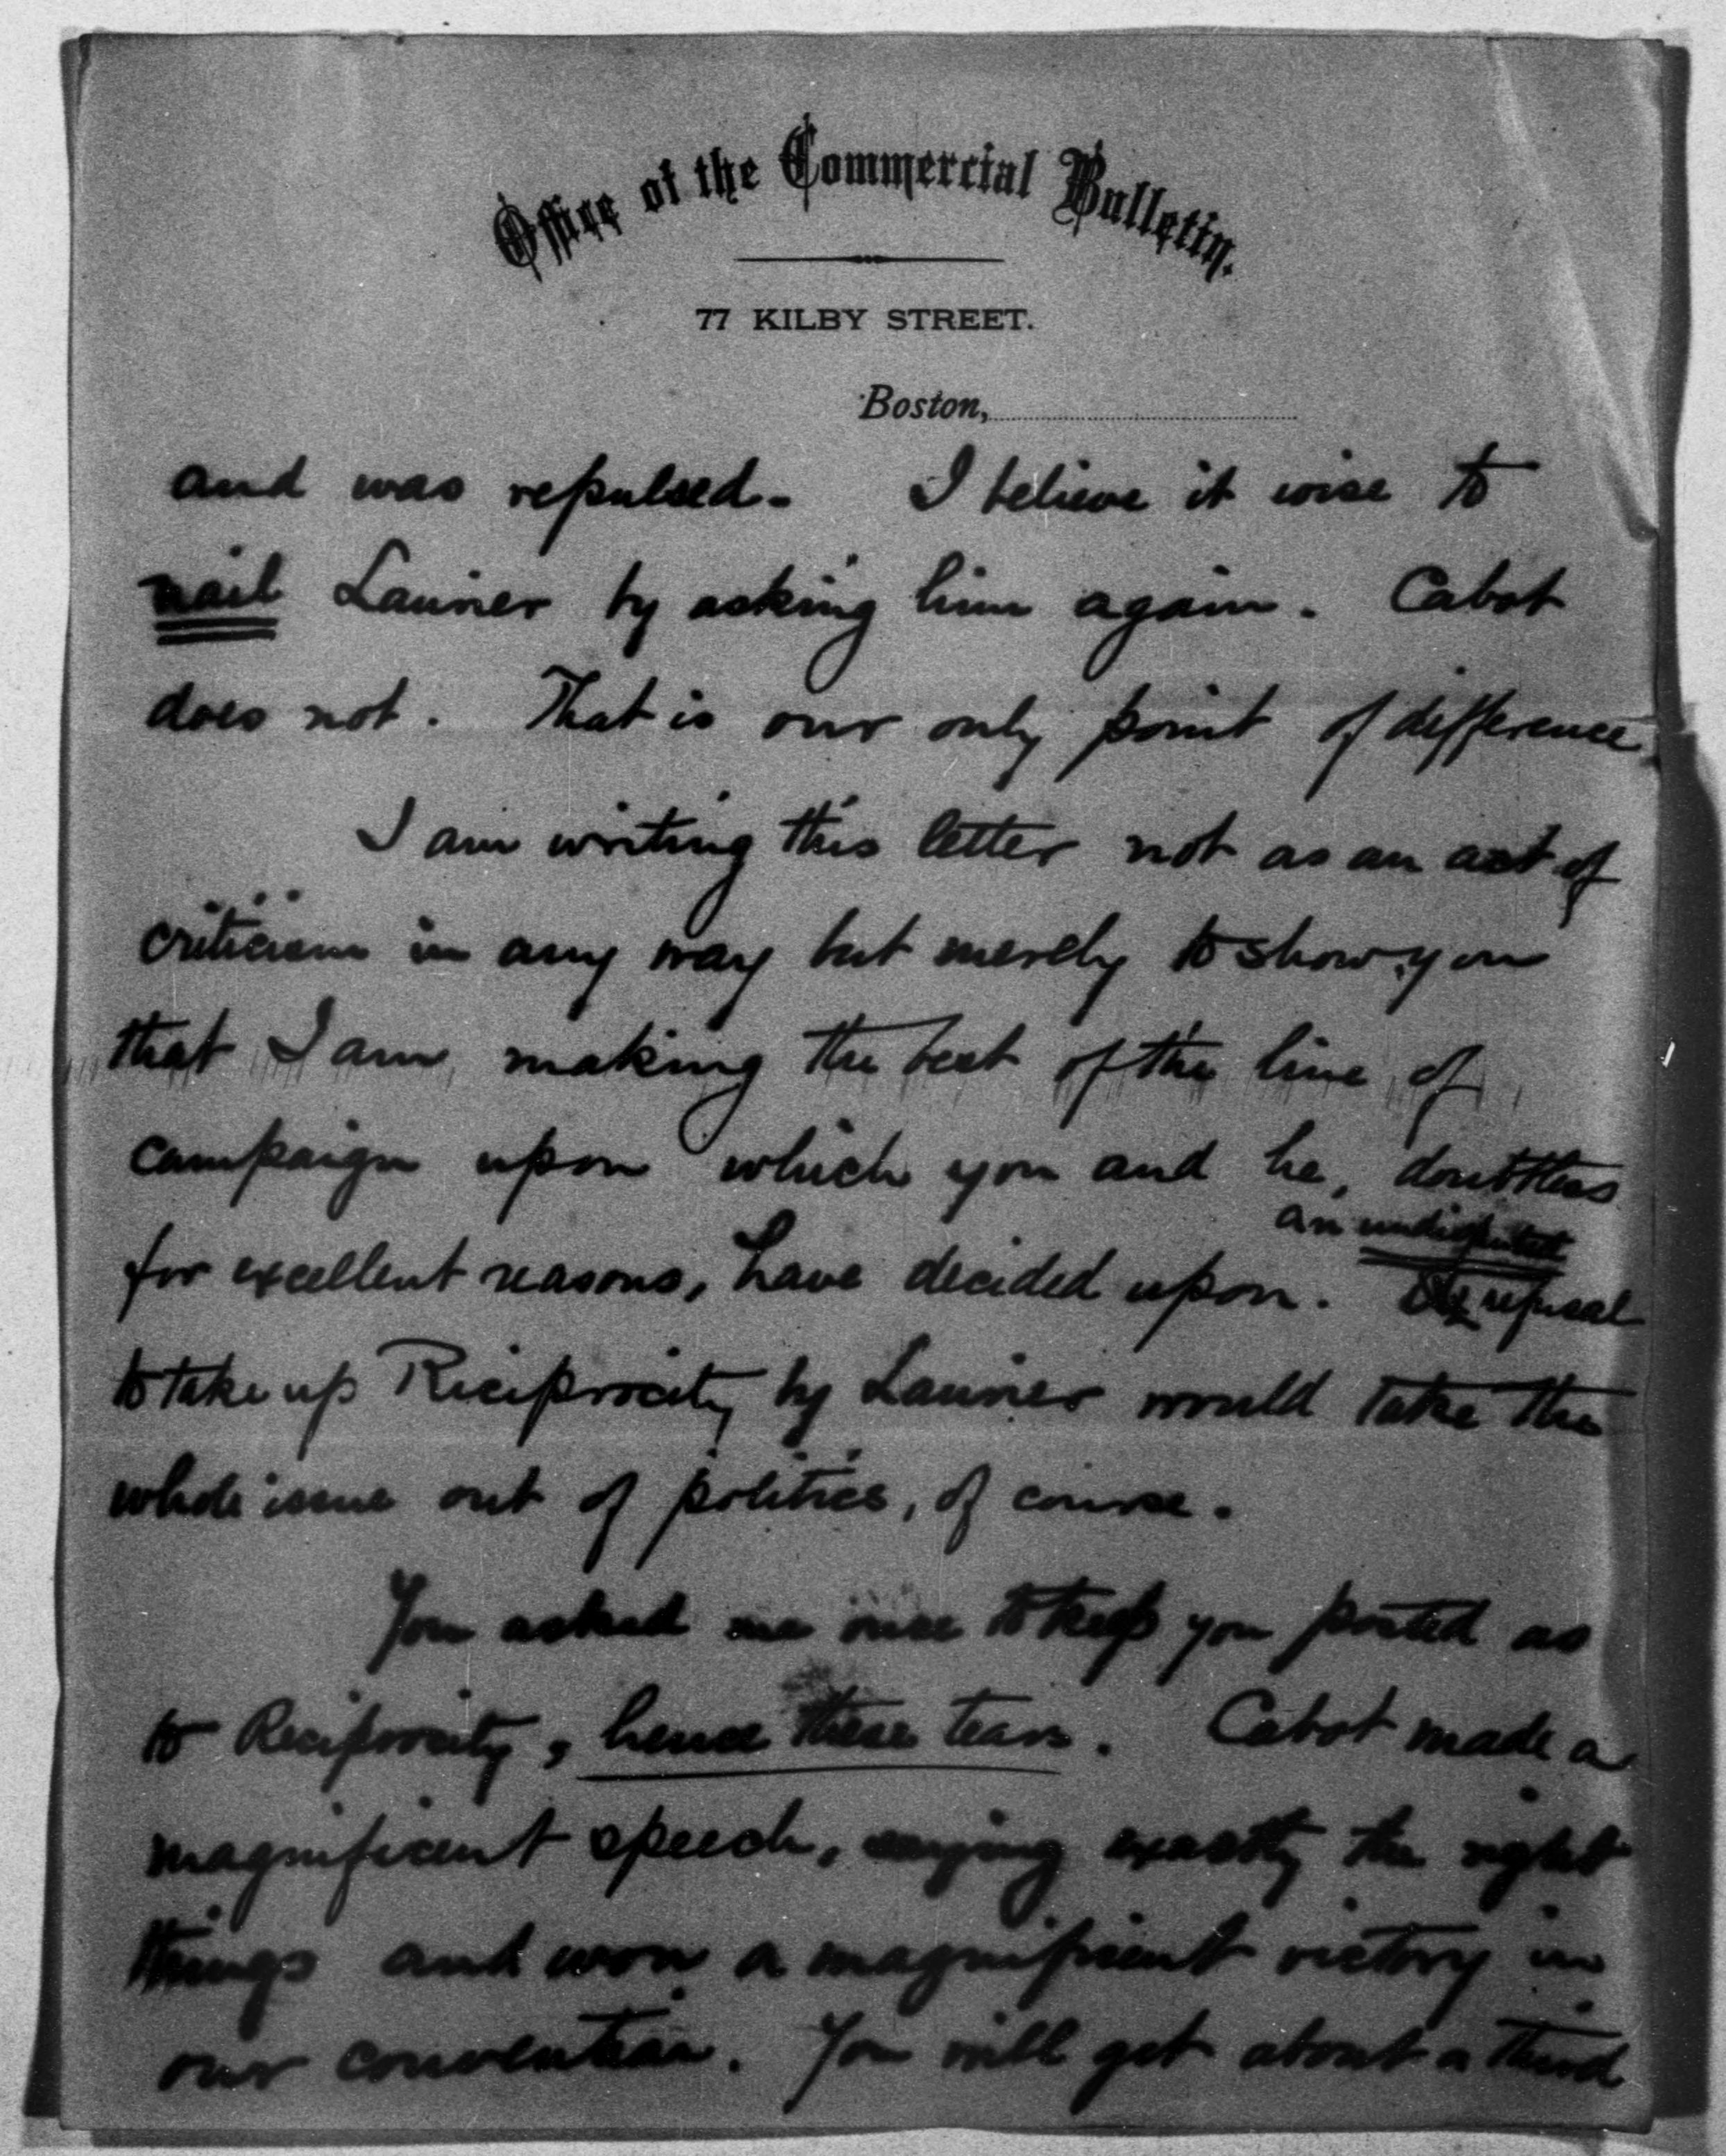 Office of the Commercial Bulletin.
77 KILBY STREET.
Boston,
and was repulsed. I believe it wise to
nail Laurier by asking him again. Cabot
does not. That is our only point of difference.
I am writing this letter not as an act of
criticism in any way but merely to show you
that I am making the best of the line of
campaign upon which you and he, doubtless
an undisputed
for excellent reasons, have decided upon. refusal
to take up Reciprocity by Laurier would take the
whole issue out of politics, of course.
You asked me once to keep you posted as
to Reciprocity, hence these tears. Cabot made a
magnificent speech, saying exactly the right
things and won a magnificent victory in
our convention. You will get about a third